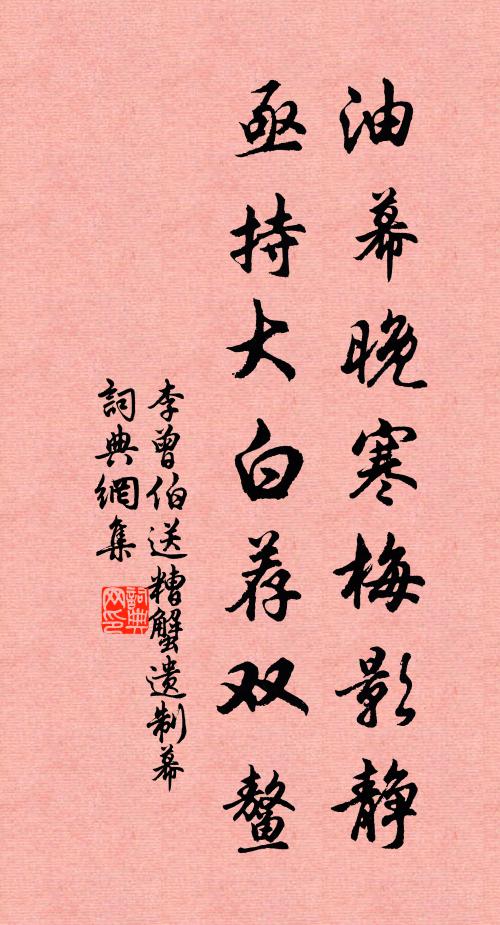 油幕晚寒梅影静
亟持大白荐双鳌
李曾伯送糟蟹遗制幕
詞典網集
詞典网印